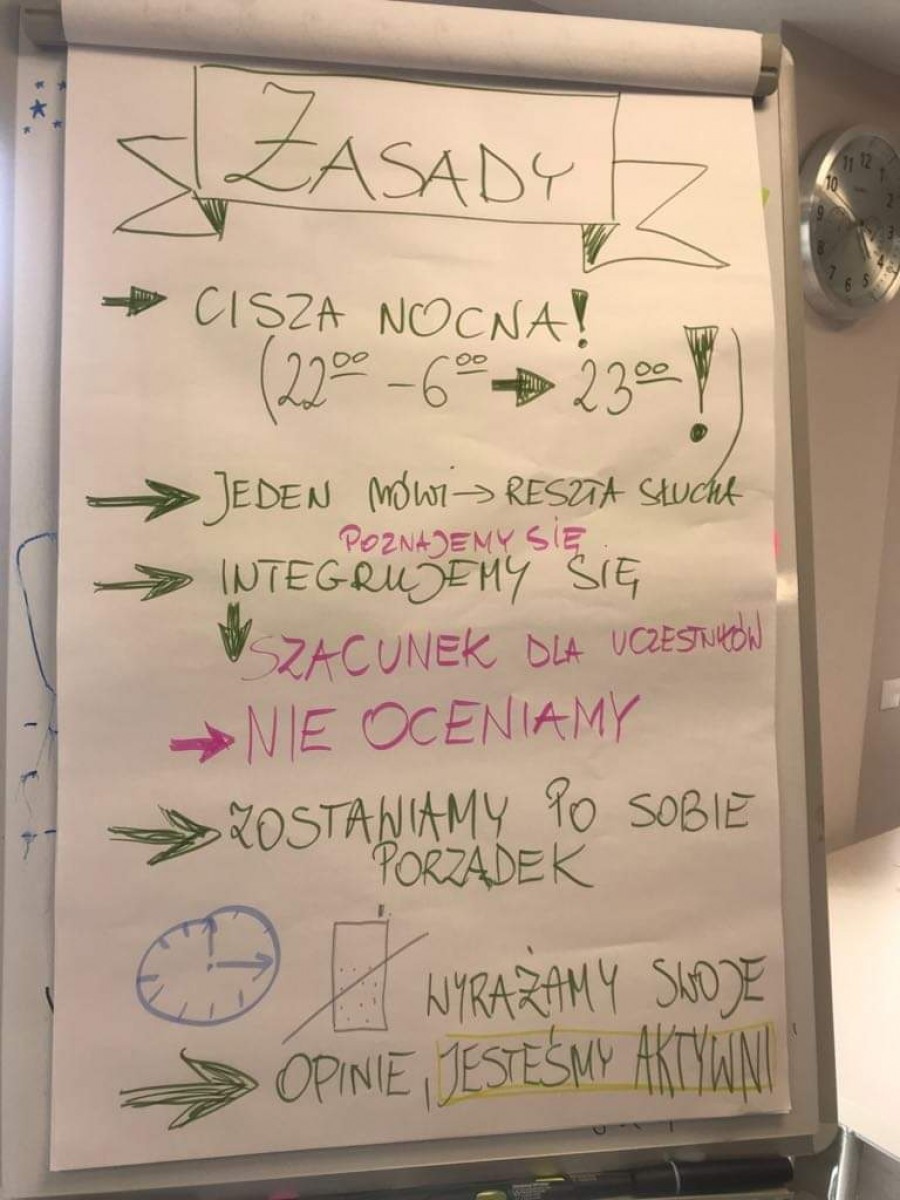 ZASADY
CISZA NOCNA!
(22⁰⁰ - 6⁰⁰ → 23⁰⁰ !)
JEDEN MÓWI → RESZTA SŁUCHA
POZNAJEMY SIĘ
INTEGRUJEMY SIĘ
SZACUNEK DLA UCZESTNIKÓW
NIE OCENIAMY
ZOSTAWIAMY PO SOBIE
PORZĄDEK
WYRAŻAMY SWOJE
OPINIE, JESTEŚMY AKTYWNI
11 12 1
10 2
9 3
8 4
7 6 5